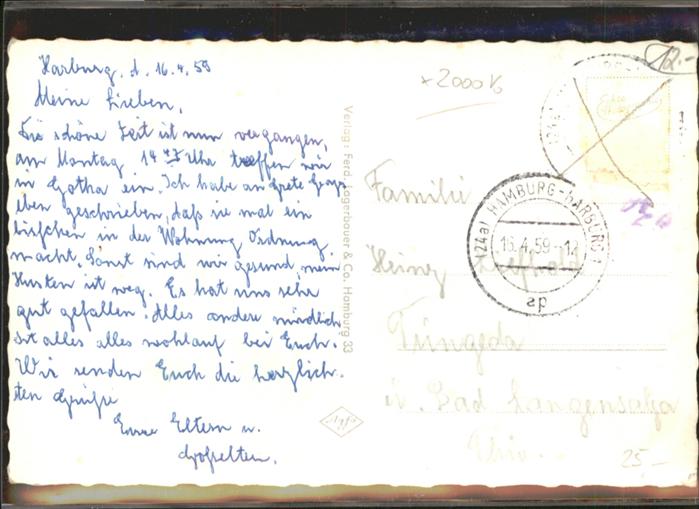 Harburg, d. 16.4.59
Meine Lieben,
Die schöne Zeit ist nun vergangen,
am Montag 14 47 Uhr treffen wir
in Gotha ein. Ich habe an Grete
eben geschrieben, daß sie mal ein
bißchen in der Wohnung Ordnung
macht. Sonst sind wir gesund, mein
Husten ist weg. Es hat uns sehr
gut gefallen. Alles andere mündlich
Ist alles alles wohlauf bei Euch.
Wir senden Euch die herzlich-
sten Grüße
Eure Eltern u.
Großeltern.
Verlag: Ferd. Lagerbauer & Co. Hamburg 33
Agfa
x 2000 Vb
12.-
(24a) HAMBURG-HARBURG 1
16.4.59-12
ap
Familie
Heinz
Tüngeda
ü. Bad Langensalza
Thür.
25,-